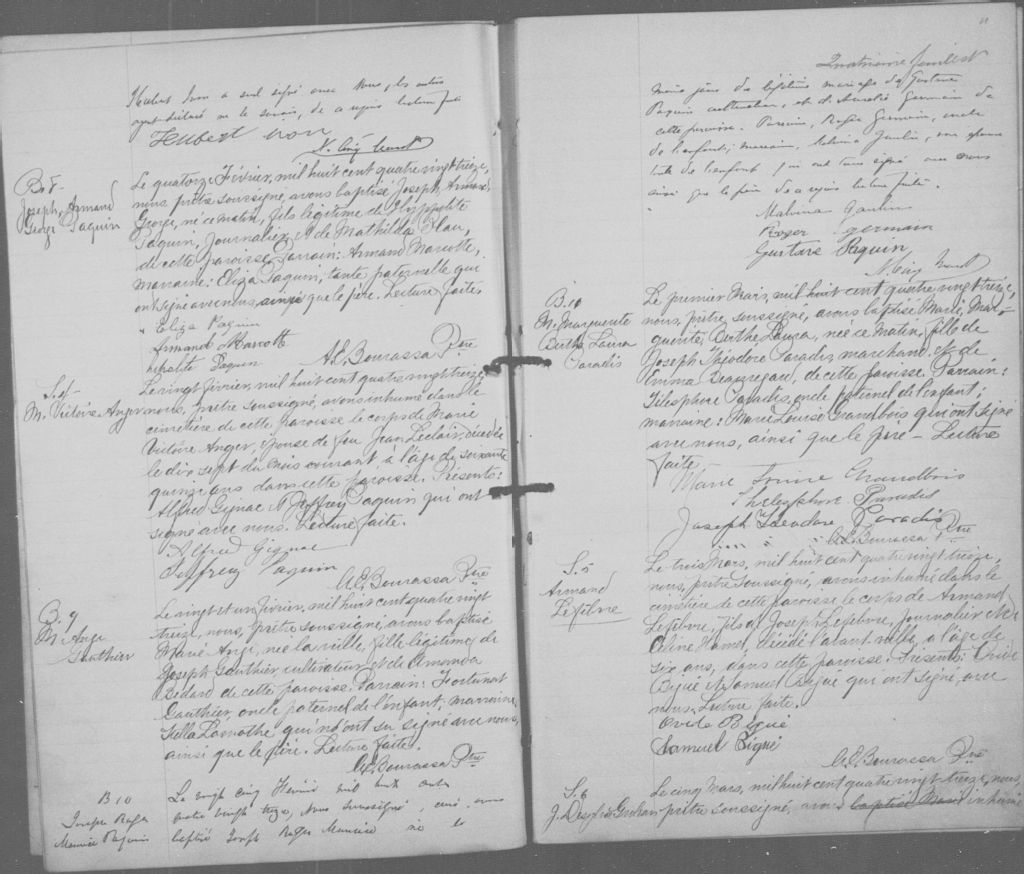 Hubert Don a seul signé avec Nous, les autres
ayant déclaré ne le savoir, de ce requis lecture faite
Hubert
B. 8
Joseph, Armand
George Paquin
Le quatorze Février, mil huit cent quatre vingt treize,
nous, prêtre soussigné, avons baptisé Joseph, Armand,
George, né ce matin, fils légitime de Hyppolite
Paquin, Journalier et de Mathilda
de cette paroisse. Parrain: Armand Marcotte,
marraine: Eliza Paquin, tante paternelle qui
ont signé avec nous ainsi que le père. Lecture faite.
Eliza Paquin
Armand Marcotte
hipolite Paquin
A.E. Bourassa Ptre
S. 4
M. Victoire Anger
Le vingt février, mil huit cent quatre vingt treize
nous, prêtre soussigné, avons inhumé dans le
cimetière de cette paroisse le corps de Marie
Victoire Anger, épouse de feu Jean Leclair, décédée
le dix sept du mois courant à l'âge de soixante
quinze ans dans cette paroisse. Présents:
Alfred Gignac et Jeffrey Paquin qui ont
signé avec nous. Lecture faite.
Alfred Gignac
Jeffrey Paquin
A.E. Bourassa Ptre
B. 9
M. Ange
Gauthier
Le vingt et un février, mil huit cent quatre vingt
treize, nous, prêtre soussigné, avons baptisé
Marie Ange, née la veille, fille légitime de
Joseph Gauthier cultivateur et de Amanda
Bédard de cette paroisse. Parrain: Fortunat
Gauthier, oncle paternel de l'enfant; marraine
Lamothe qui n'ont su signer avec nous,
ainsi que le père. Lecture faite.
A.E. Bourassa Ptre
B 10
Joseph Roger
Maurice Paquin
Le vingt cinq Février mil huit cent
quatre vingt treize, nous soussigné, curé, avons
baptisé Joseph Roger Maurice né le
11
Quatrième feuillet
même jour du légitime mariage de Gustave
Paquin cultivateur, et d'Aurélie Germain de
cette paroisse. Parrain, Roger Germain, oncle
de l'enfant; marraine, Malvina Gaulin,
tante de l'enfant qui ont tous signé avec nous
ainsi que le père de ce requis lecture faite.
Malvina Gaulin
Roger germain
Gustave Paquin
B. 10
M. Marguerite
Berthe Laura
Paradis
Le premier Mars, mil huit cent quatre vingt treize,
nous, prêtre soussigné, avons baptisé Marie, Mar-
guerite, Berthe Laura, née ce matin, fille de
Joseph Théodore Paradis, marchand, et de
Emma Beauregard, de cette paroisse. Parrain:
Télesphore Paradis, oncle paternel de l'enfant;
marraine: Marie Louise Grandbois qui ont signé
avec nous, ainsi que le père - Lecture
faite
Marie Louise Grandbois
Thelesphore Paradis
Joseph Theodore Paradis
A.E. Bourassa Ptre
S. 5
Armand
Lefebvre
Le trois Mars, mil huit cent quatre vingt treize,
nous, prêtre soussigné, avons inhumé dans le
cimetière de cette paroisse le corps de Armand
Lefebvre, fils de Joseph Lefebvre, journalier et de
Céline Hamel, décédé l'avant veille, à l'âge de
six ans, dans cette paroisse. Présents: Ovide
Bigué et Samuel Bigué qui ont signé, avec
nous. Lecture faite.
Ovide Bigué
Samuel Bigué
A.E. Bourassa Ptre
S. 6
Le cinq Mars, mil huit cent quatre vingt-treize, nous,
prêtre soussigné, avons baptisé Marie inhumé